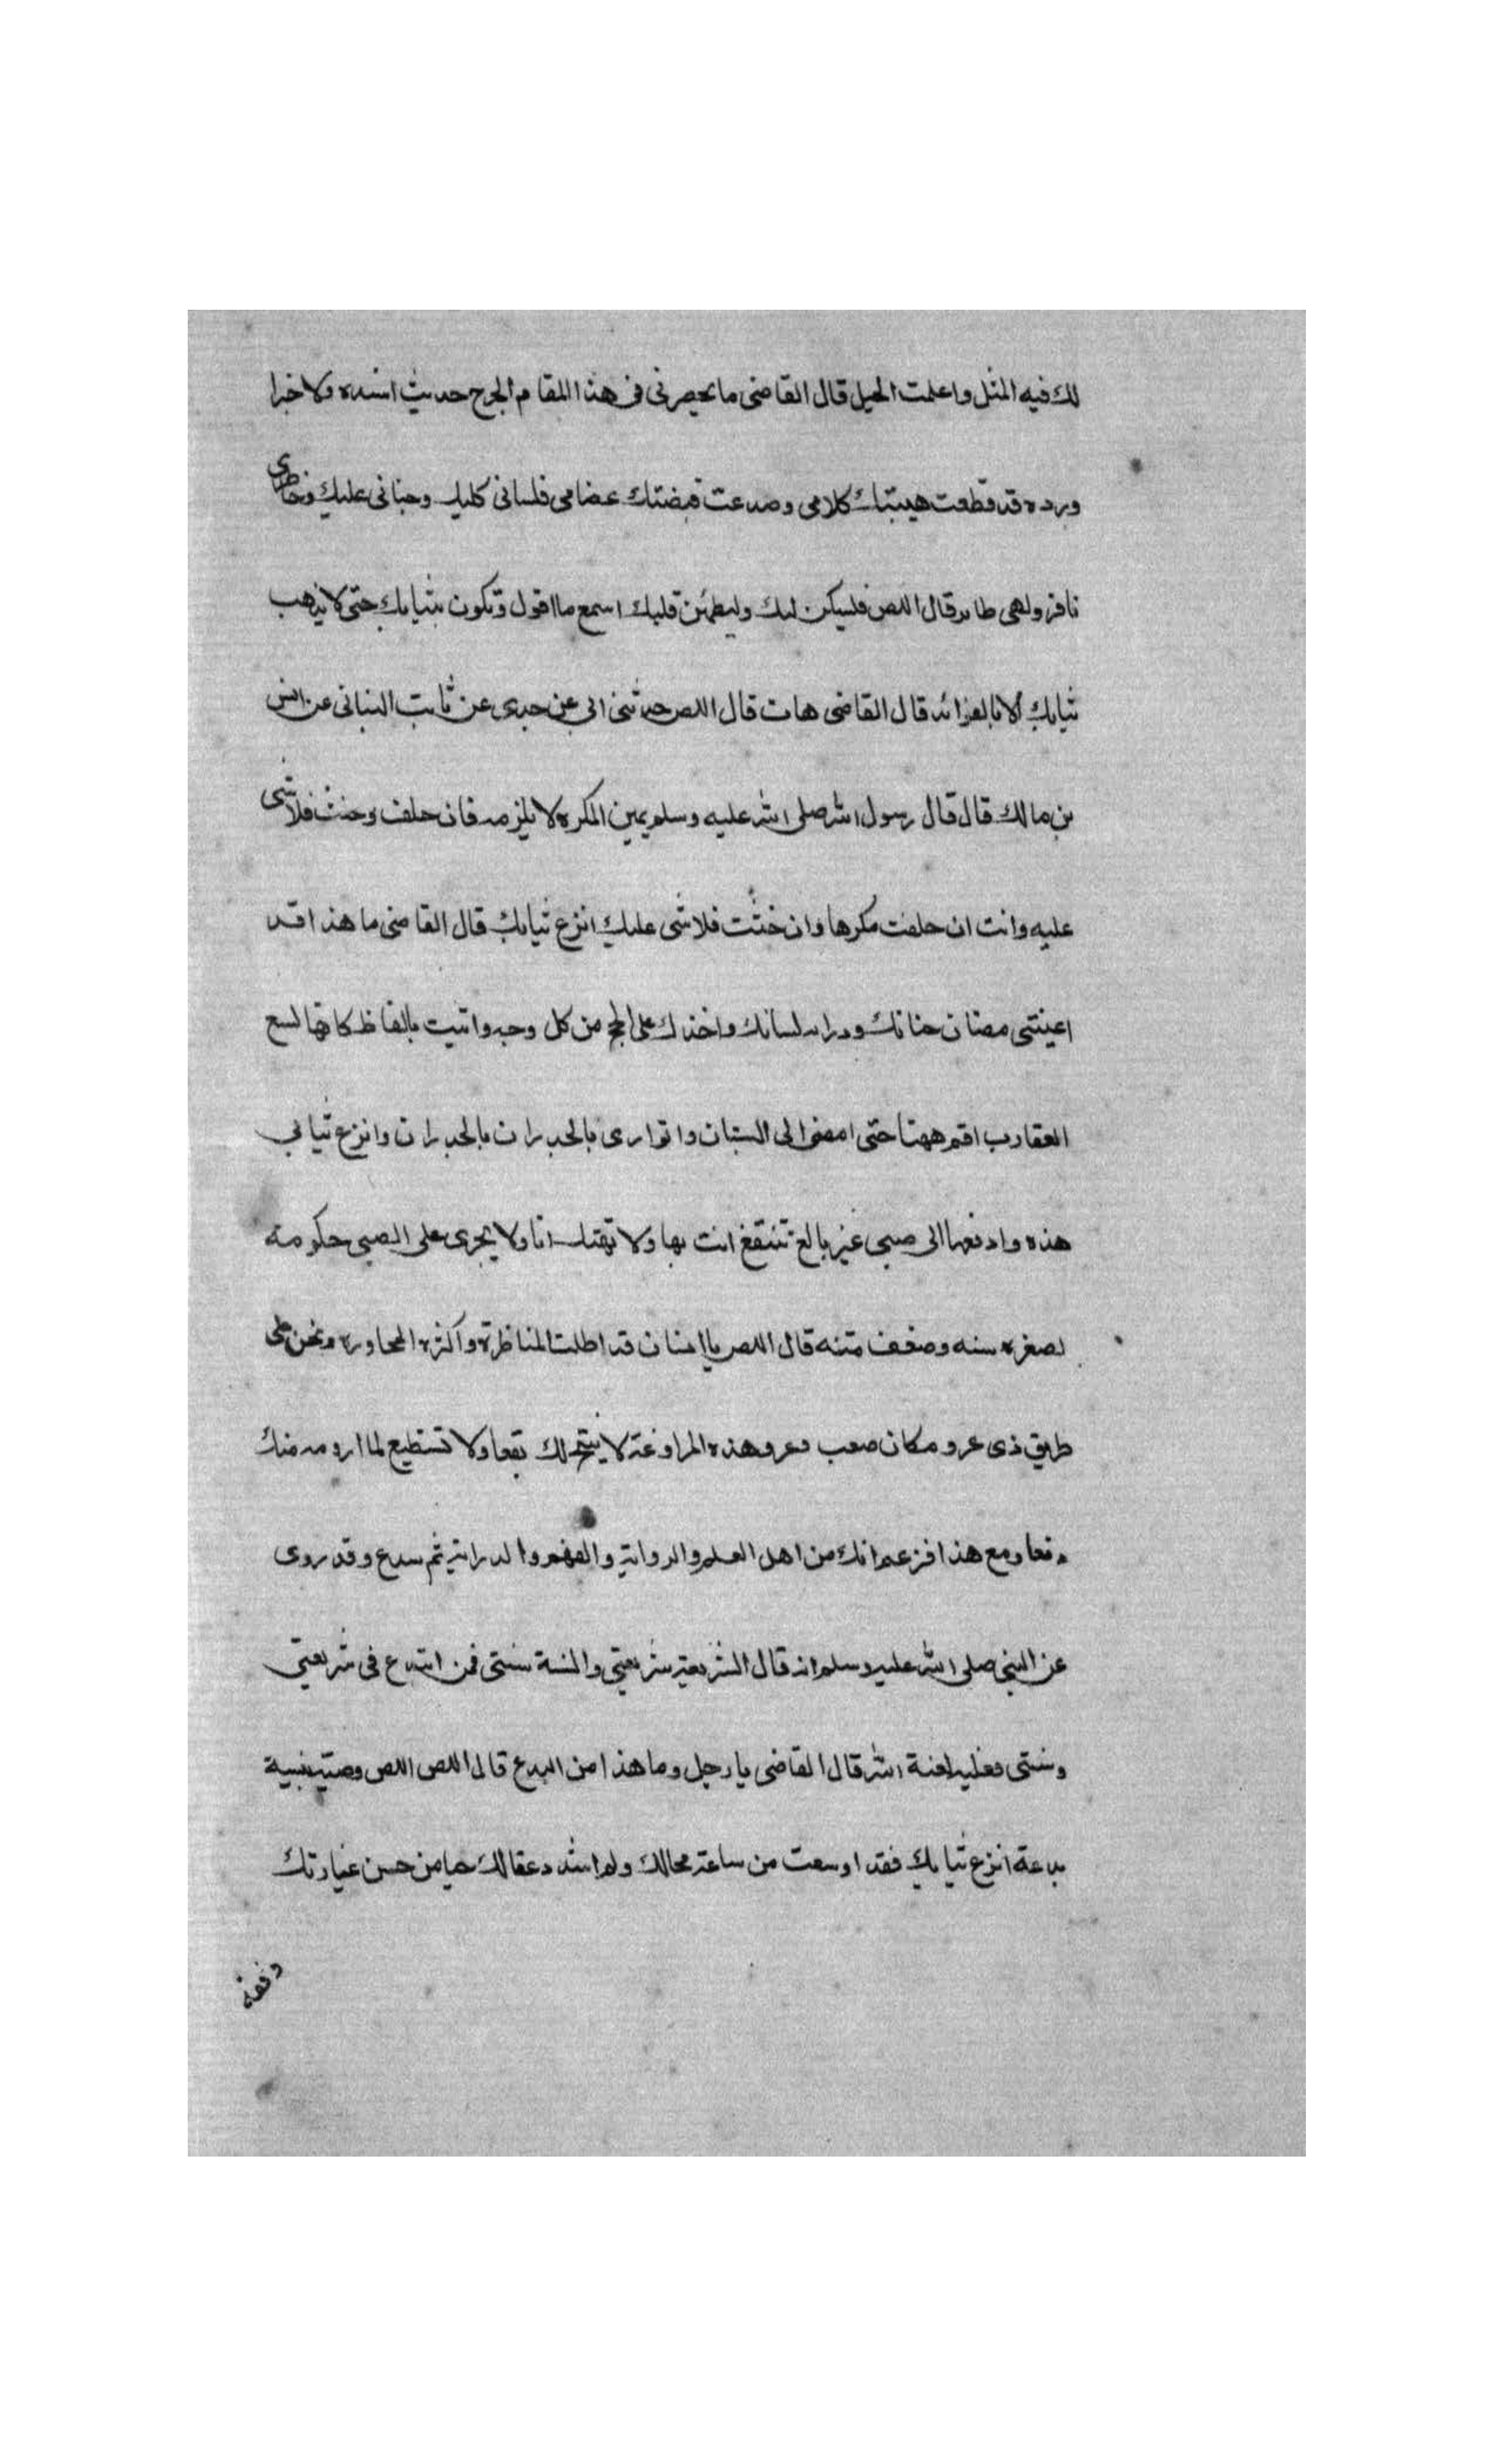 لك فيه المثل واعلمت الحيل قال القاضى ما يحصرنى فى هذا المقام الحرج حديث اسنده ولا خبرا
ورده قد قطعت هيبتك كلامى وصدعت قبضتك عضامى فلسانى كليل وجنانى عليك وخاطرى
نافر ولهى طاير قال اللص فليسكن لبك وليطمئن قلبك اسمع ما اقول وتكون بثيابك حتى لا تذهب
ثيابك الا بالفوائد قال القاضى هات قال اللص حدثنى ابى عن جدى عن ثابت البنانى عن انس
بن مالك قال قال رسول الله صلى الله عليه وسلم يمين المكره لا يلزمه فان حلف وحنث فلا شى
عليه وانت ان حلفت مكرها وان حنثت فلا شى عليك انزع ثيابك قال القاضى ما هذا قد
اعيتنى جنانك ودراب لسانك واخذك على الحج من كل وجه واتيت بالفاظ كانها لسع
العقارب اقم ههنا حتى امضى الى البستان واتوارى بالجدران بالجدران وانزع ثيابى
هذه وادفعها الى صبى غير بالغ تنتفع انت بها ولا تهتك انا ولا يجرى على الصبى حكومة
لصغره سنه وضعف متنه قال اللص يا انسان قد اطلت المناظرة واكثره المحاوره ونحن على
طريق ذى عرو مكان صعب وعر وهذه المراوغة لا ينتج لك نفعا ولا تستطيع لما ارومه منك
دفعا ومع هذا فزعم انك من اهل العلم والرواية والفهم والدراية ثم تبدع وقد روى
عن النبى صلى الله عليه وسلم انه قال الشريعة شريعتى والسنة سنتى فمن ابتدع فى شريعتى
وسنتى فعليه لعنة الله قال القاضى يا رجل وما هذا من البدع قال اللص اللص وصية بنسية
بدعة انزع ثيابك فقد اوسعت من ساعة محالك ولم اشدد عقالك حيا من حسن عبارتك
وفقه